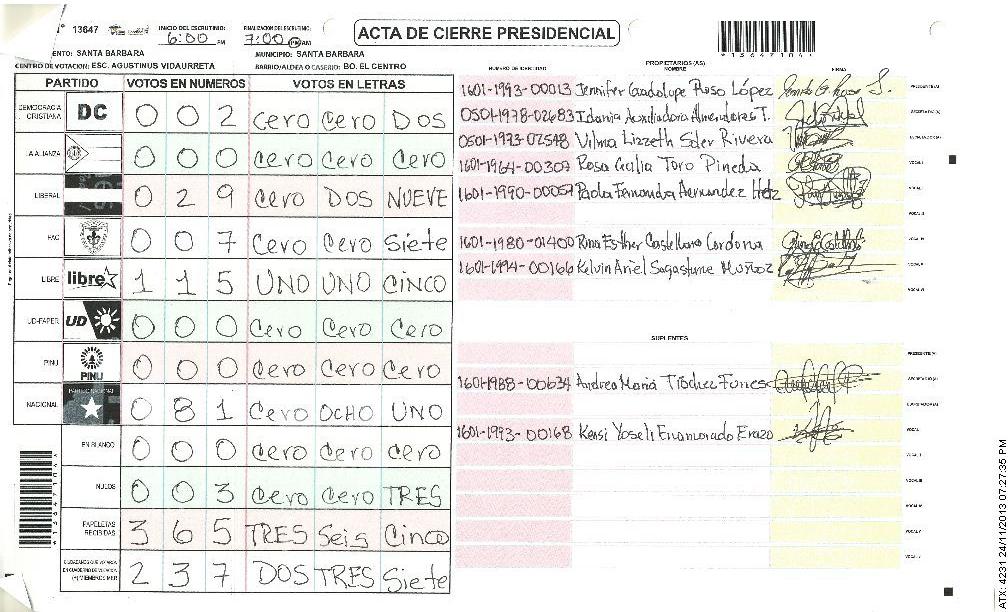 N° 13647 INICIO DEL ESCRUTINIO: 6:00 PM FINALIZACION DEL ESCRUTINIO: 7:00 PM AM
ACTA DE CIERRE PRESIDENCIAL
13647104
SANTA BARBARA MUNICIPIO: SANTA BARBARA
CENTRO DE VOTACION: ESC. AGUSTINUS VIDAURRETA BARRIO/ALDEA O CASERIO: BO. EL CENTRO
PARTIDO VOTOS EN NUMEROS VOTOS EN LETRAS
DEMOCRACIA CRISTIANA DC 0 0 2 Cero Cero DOS
LA ALIANZA 0 0 0 Cero Cero Cero
LIBERAL 0 2 9 Cero DOS NUEVE
PAC 0 0 7 Cero Cero Siete
LIBRE libre 1 1 5 UNO UNO CINCO
UD-FAPER UD 0 0 0 Cero Cero Cero
PINU PINU 0 0 0 Cero Cero Cero
NACIONAL 0 8 1 Cero OCHO UNO
EN BLANCO 0 0 0 Cero Cero Cero
NULOS 0 0 3 Cero Cero TRES
PAPELETAS RECIBIDAS 3 6 5 TRES Seis Cinco
CIUDADANOS QUE VOTARON EN CUADERNO DE VOTACION (+) MIEMBROS MER 2 3 7 DOS TRES Siete
NUMERO DE IDENTIDAD PROPIETARIOS (AS) NOMBRE FIRMA
1601-1993-00013 Jennifer Guadalupe Raso López PRESIDENTE(A)
0501-1978-02683 Idania Auxiliadora Almendares T. SECRETARIO(A)
0501-1973-02548 Vilma Lizzeth Soler Rivera ESCRUTADOR(A)
1601-1964-00307 Rosa Cecilia Toro Pineda VOCAL I
1601-1990-00057 Paola Fernanda Hernandez Hdz VOCAL II
VOCAL III
1601-1980-01400 Rina Esther Castellano Cardona VOCAL IV
1601-1994-00166 Kelvin Ariel Sagastume Muñoz VOCAL V
VOCAL VI
SUPLENTES
PRESIDENTE(A)
1601-1988-00634 Andrea Maria Trochez Funes SECRETARIO(A)
ESCRUTADOR(A)
1601-1993-00168 Kensi Yoseli Enamorado Erazo VOCAL I
VOCAL II
VOCAL III
VOCAL IV
VOCAL V
VOCAL VI
ATX: 4231 24/11/2013 07:27:35 PM